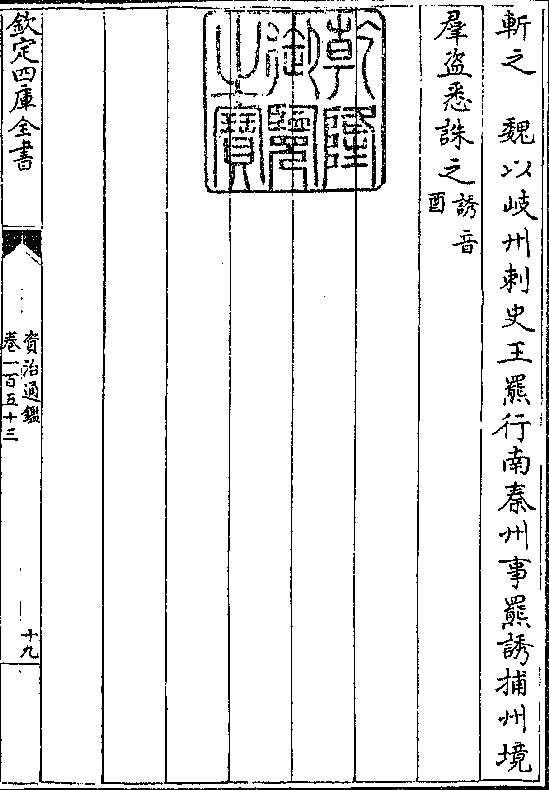 斬之　魏以岐州刺史王羆行南秦州事羆誘捕州境
羣盜悉誅之誘音酉
乾隆御覽之寶
欽定四庫全書
資治通鑑
卷一百五十三
十九